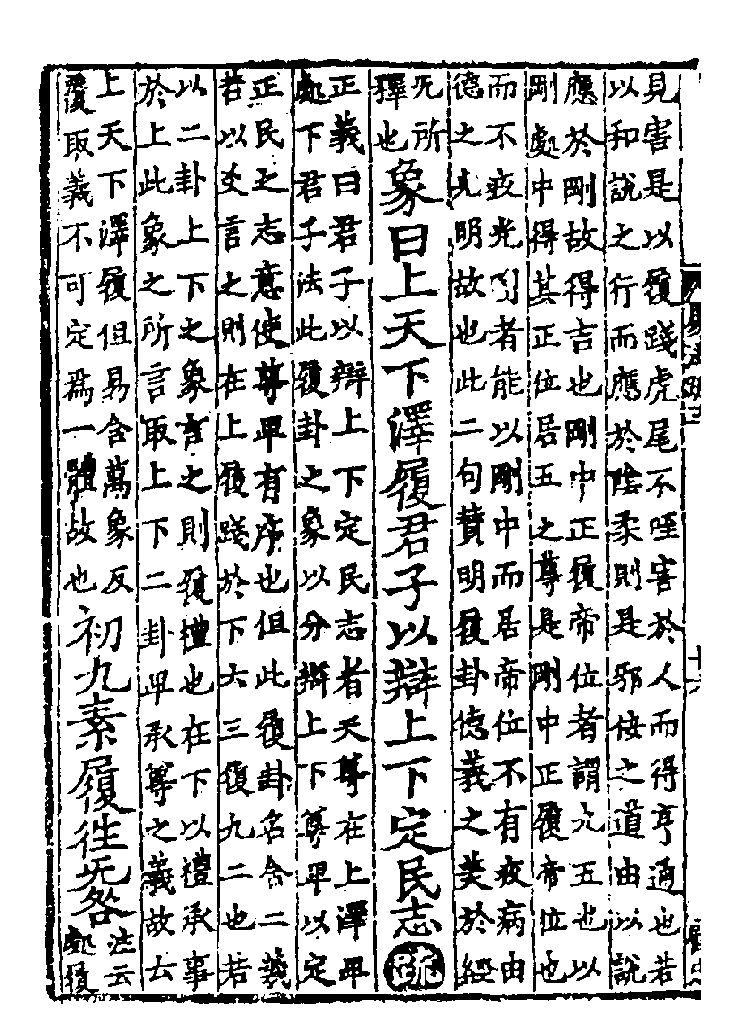 見害是以履踐虎尾不咥害於人而得亨通也若
以和說之行而應於陰柔則是邪佞之道由以說
應於剛故得吉也剛中正履帝位者謂九五也以
剛處中得其正位居五之尊是剛中正履帝位也
而不疚光明者能以剛中而居帝位不有疚病由
德之光明故也此二句贊明履卦德義之美於經
无所
釋也
象曰上天下澤履君子以辯上下定民志疏
正義曰君子以辯上下定民志者天尊在上澤卑
處下君子法此履卦之象以分辯上下尊卑以定
正民之志意使尊卑有序也但此履卦名含二義
若以爻言之則在上履踐於下六三履九二也若
以二卦上下之象言之則履禮也在下以禮承事
於上此象之所言取上下二卦卑承尊之義故云
上天下澤履但易含萬象反
覆取義不可定爲一體故也
初九素履往无咎
注云
處履